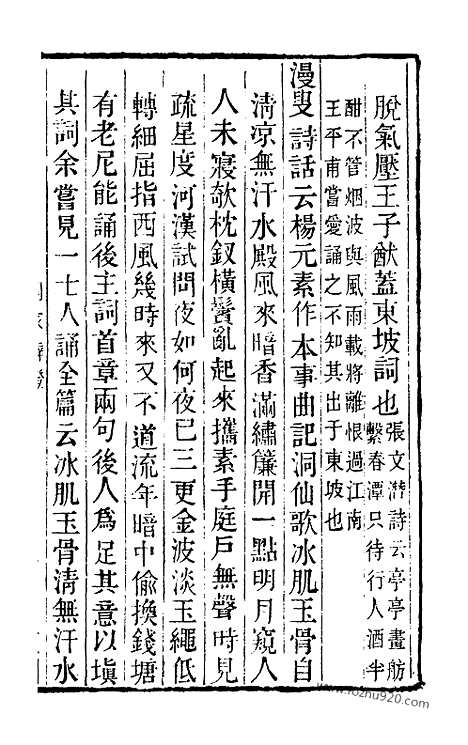 脫氣壓王子猷蓋東坡詞也張文潛詩云亭亭畫舫
繫春潭只待行人酒半
酣不管烟波與風雨載將離恨過江南
王平甫嘗愛誦之不知其出于東坡也
漫叟詩話云楊元素作本事曲記洞仙歌冰肌玉骨自
淸凉無汗水殿風來暗香滿繡簾開一點明月窺人
人未寢欹枕釵橫鬢亂起來攜素手庭戶無聲時見
疏星度河漢試問夜如何夜已三更金波淡玉繩低
轉細屈指西風幾時來又不道流年暗中偷換錢塘
有老尼能誦後主詞首章兩句後人爲足其意以塡
其詞余嘗見一士人誦全篇云冰肌玉骨淸無汗水
www.fozhu920.com